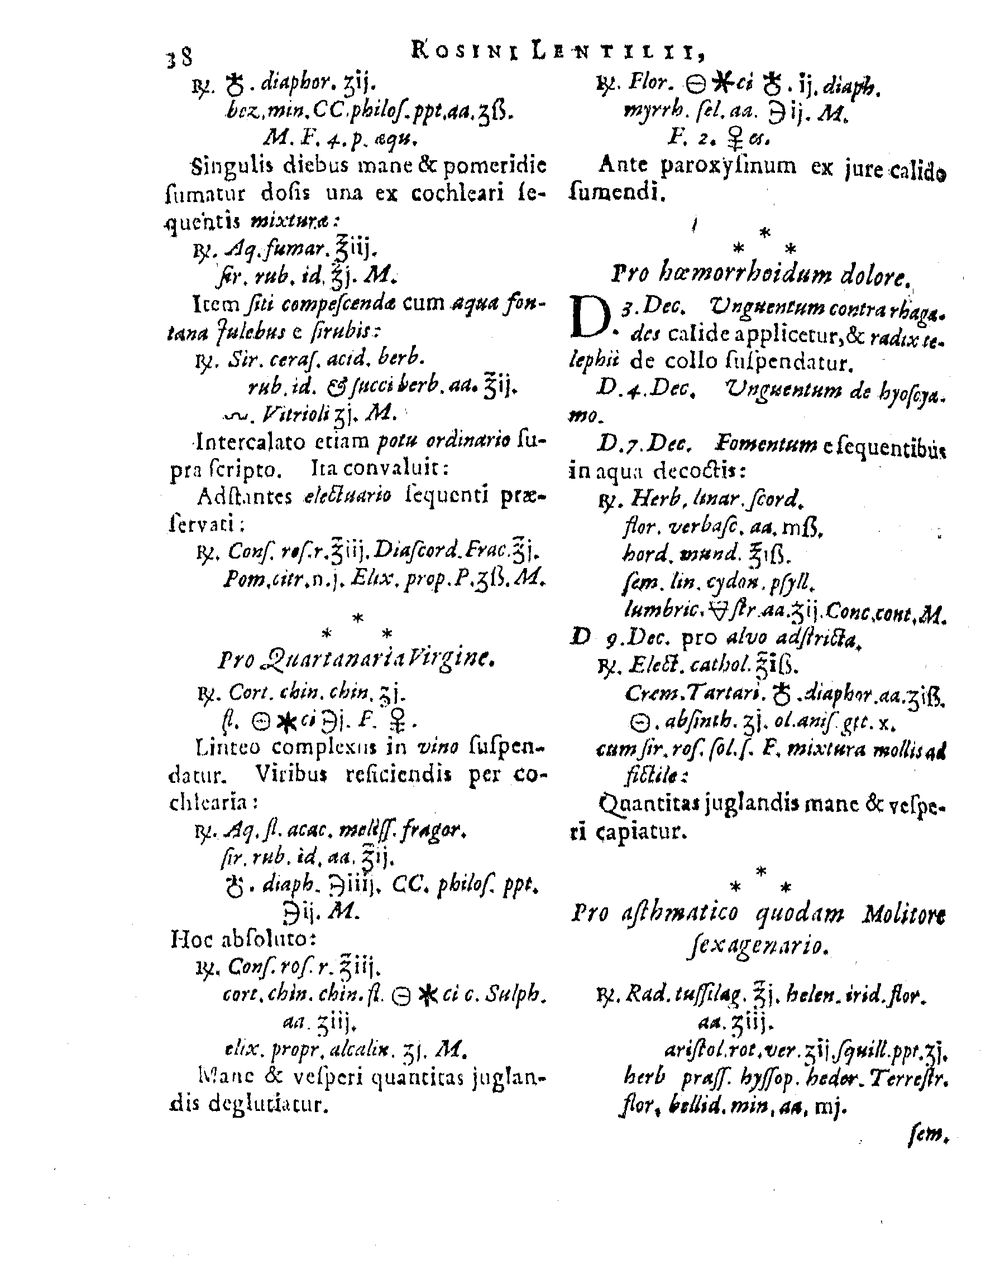 38
ROSINI LENTILII,
℞. ♁. diaphor. ʒij.
bez. min. CC. philoſ. ppt. aa. ʒß.
M. F. 4. p. æqu.
Singulis diebus mane & pomeridie
ſumatur doſis una ex cochleari ſe-
quentis mixturæ:
℞. Aq. fumar. ℥iij.
ſir. rub. id, ℥j. M.
Item ſiti compeſcendæ cum aqua fon-
tana Julebus e ſirubis:
℞. Sir. ceraſ. acid. berb.
rub. id. & ſucci berb. aa. ℥ij.
Vitrioli ʒj. M.
Intercalato etiam potu ordinario ſu-
pra ſcripto. Ita convaluit:
Adſtantes electuario ſequenti præ-
ſervati:
℞. Conſ. roſ. r. ℥iij. Diaſcord. Frac. ℥j.
Pom. citr. n. j. Elix. prop. P. ʒß. M.
*
* *
Pro Quartanaria Virgine.
℞. Cort. chin. chin. ʒj.
fl. 🜔 ✱ ci ℈j. F. ♀.
Linteo complexus in vino ſuſpen-
datur. Viribus reficiendis per co-
chlearia:
℞. Aq. fl. acac. meliſſ. fragor.
ſir. rub. id, aa. ℥ij.
♁. diaph. ℈iiij. CC. philoſ. ppt.
℈ij. M.
Hoc abſoluto:
℞. Conſ. roſ. r. ℥iij.
cort. chin. chin. fl. 🜔 ✱ ci c. Sulph.
aa. ʒiij.
elix. propr. alcalin. ʒj. M.
Mane & veſperi quantitas juglan-
dis deglutiatur.
℞. Flor. 🜔 ✱ ci ♁. ij. diaph.
myrrh. ſel. aa. ℈ij. M.
F. 2. ♀ es.
Ante paroxyſinum ex jure calido
ſumendi.
*
* *
Pro hœmorrhoidum dolore.
D. 3. Dec. Unguentum contra rhaga-
des calide applicetur, & radix te-
lephii de collo ſuſpendatur.
D. 4. Dec. Unguentum de hyoſcya-
mo.
D. 7. Dec. Fomentum e ſequentibus
in aqua decoctis:
℞. Herb. linar. ſcord.
flor. verbaſc. aa. mß.
hord. mund. ℥iß.
ſem. lin. cydon. pſyll.
lumbric. ſtr. aa. ʒij. Conc. cont. M.
D 9. Dec. pro alvo adſtricta.
℞. Elect. cathol. ℥iß.
Crem. Tartari. ♁. diaphor. aa. ʒiß.
🜔. abſinth. ʒj. ol. aniſ. gtt. x.
cum ſir. roſ. ſol. ſ. F. mixtura mollis ad
fictile:
Quantitas juglandis mane & veſpe-
ri capiatur.
*
* *
Pro aſthmatico quodam Molitore
ſexagenario.
℞. Rad. tuſſilag. ℥j. helen. irid. flor.
aa. ʒiij.
ariſtol. rot. ver. ʒij. ſquill. ppt. ʒj.
herb praſſ. hyſſop. heder. Terreſtr.
flor. bellid. min, aa, mj.
ſem.